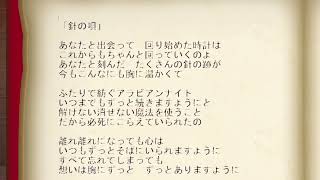 「針の唄」
あなたと出会って　回り始めた時計は
これからもちゃんと回っていくのよ
あなたと刻んだ　たくさんの針の跡が
今もこんなにも胸に温かくて
ふたりで紡ぐアラビアンナイト
いつまでもずっと続きますようにと
解けない消せない魔法を使うこと
だから必死にこらえていられたの
離れ離れになっても心は
いつもずっとそばにいられますように
すべて忘れてしまっても
想いは胸にずっと　ずっとありますように